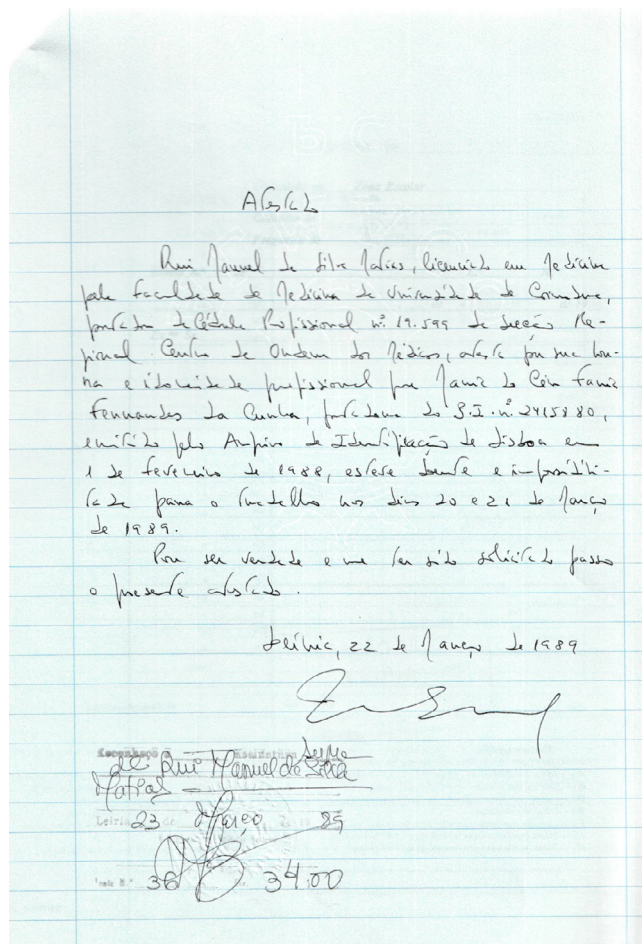 Atestado
Rui Manuel da Silva Matias, licenciado em Medicina
pela Faculdade de Medicina da Universidade de Coimbra,
portador da Cédula Profissional nº. 19.599 da Secção Re-
gional Centro da Ordem dos Médicos, atesta por sua hon-
ra e idoneidade profissional que Maria do Céu Faria
Fernandes da Cunha, portadora do B.I. nº. 2415880,
emitido pelo Arquivo de Identificação de Lisboa em
1 de fevereiro de 1988, esteve doente e impossibili-
tada para o trabalho nos dias 20 e 21 de Março
de 1989.
Por ser verdade e me ter sido solicitado passo
o presente atestado.
Leiria, 22 de Março de 1989
Reconheço a assinatura supra
de Rui Manuel da Silva
Matias
Leiria 23 de Março 89
36 34.00